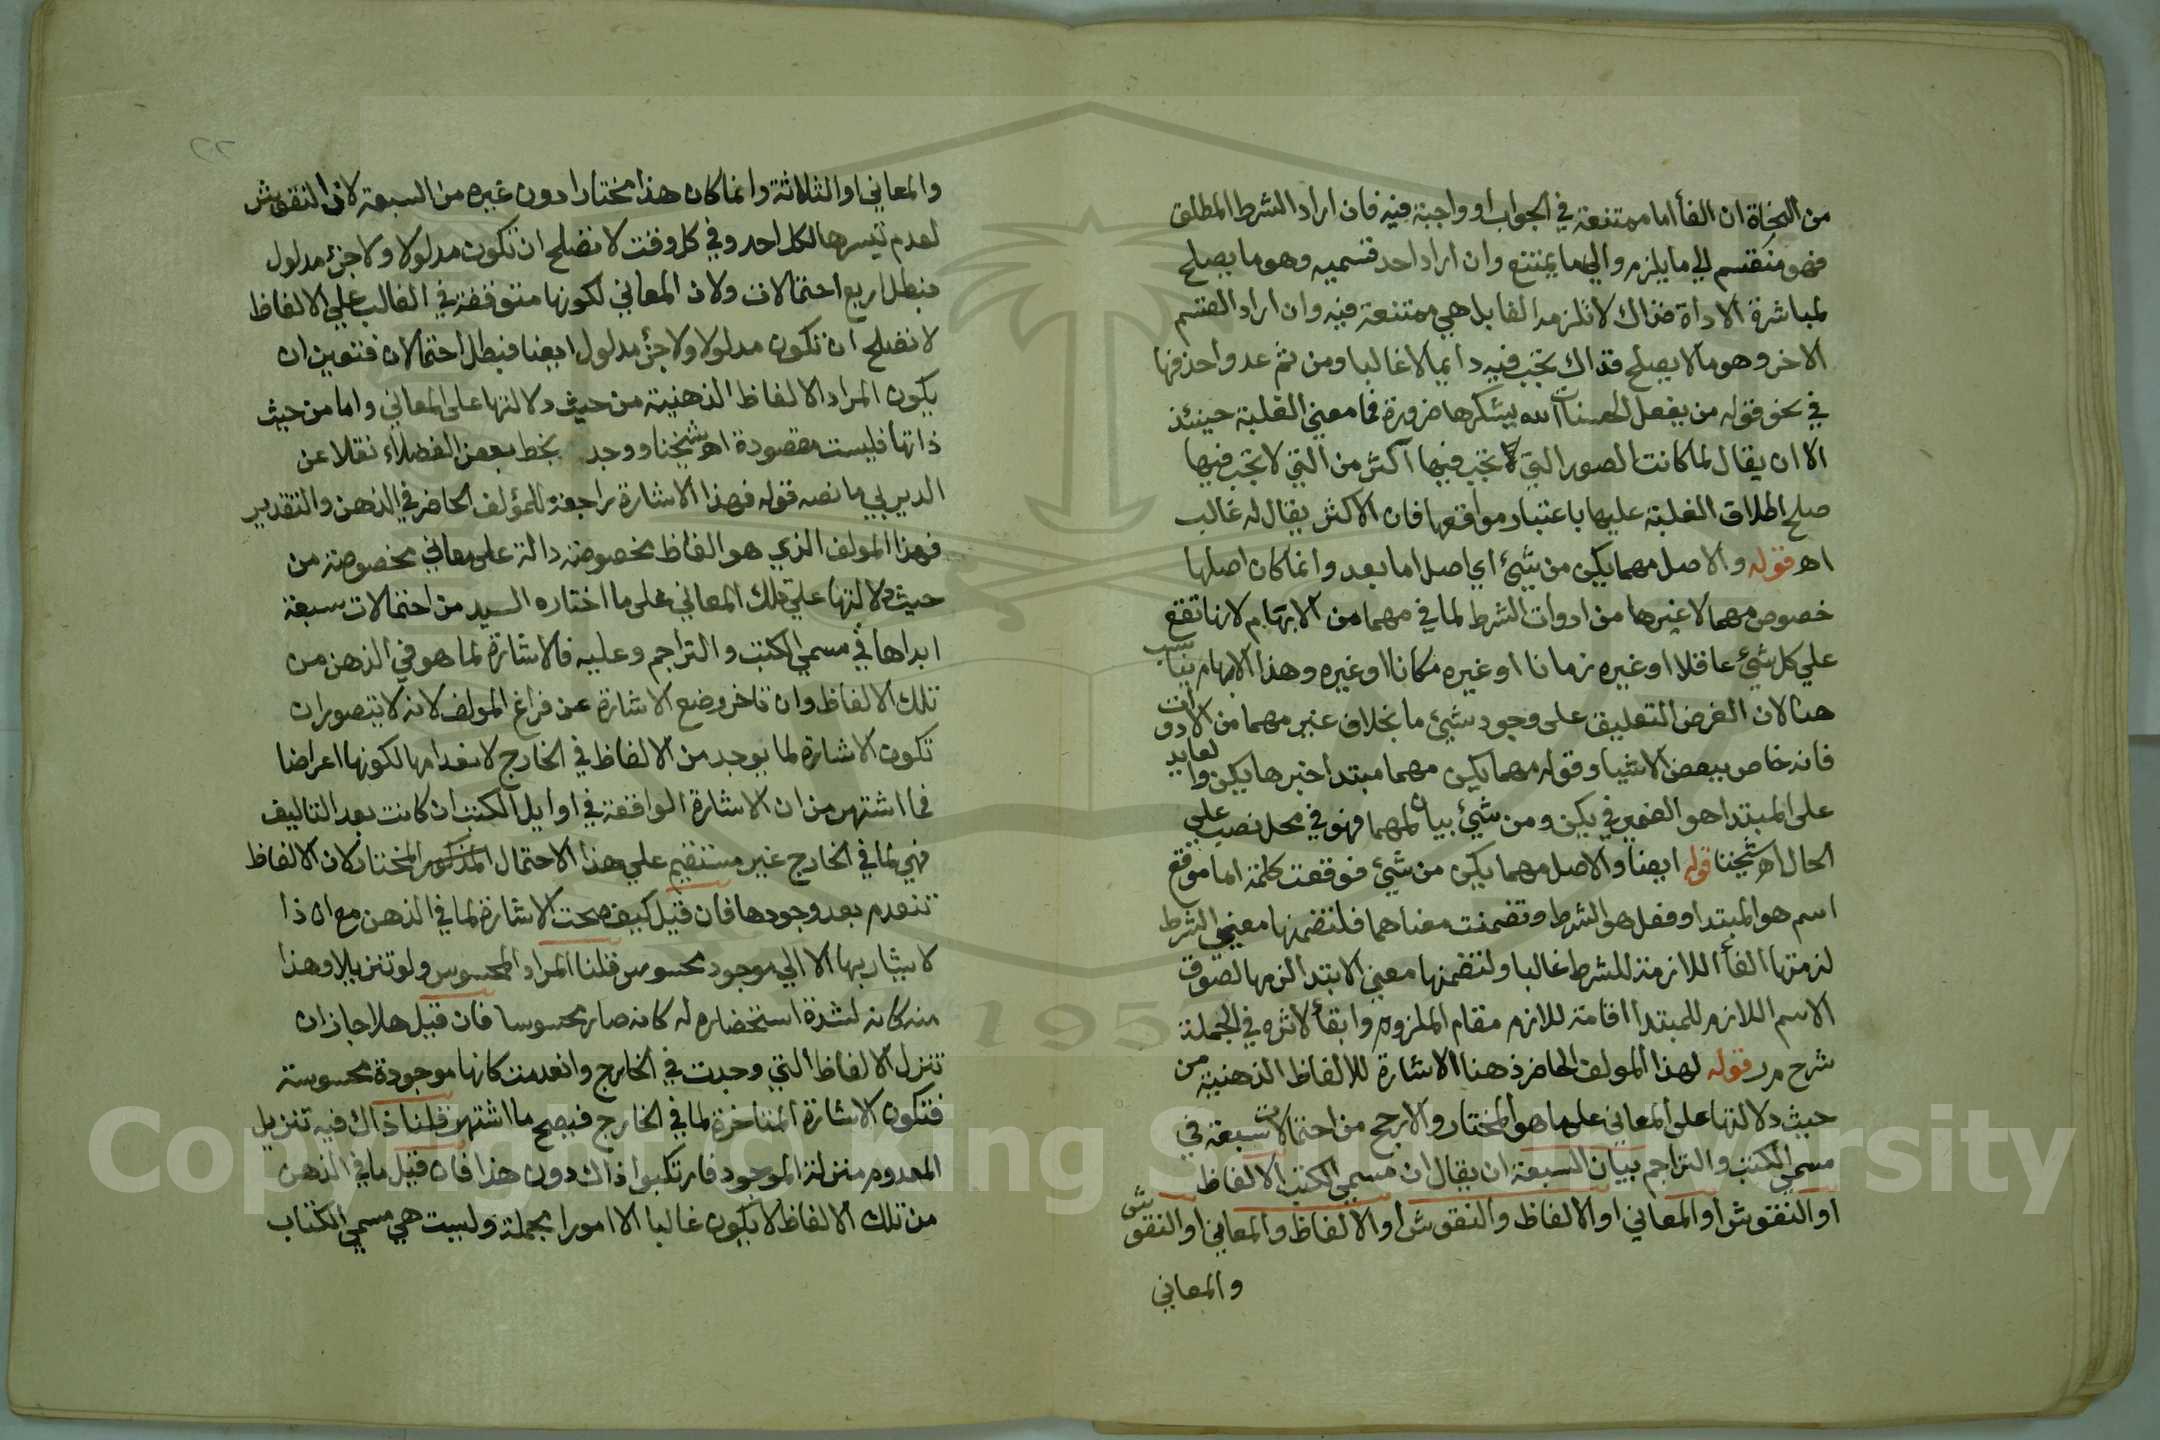 من النحاة ان الفأ اما ممتنعة في الجواب او واجبة فيه فان اراد الشرط المطلق
فهو منقسم الي ما يلزم والي ما يمتنع وان اراد احد قسميه وهو ما يصلح
لمباشرة الاداة فذاك لا تلزمه الفا بل هي ممتنعة فيه وان اراد القسم
الاخر وهو ما لا يصلح فذاك تجب فيه دايما لا غالبا ومن ثم عد واحذفها
في نحو قوله من يفعل الحسنات الله يشكرها ضرورة فما معني الغلبة حينئذ
الا ان يقال لما كانت الصور التي تجب فيها اكثر من التي لا تجب فيها
صلح اطلاق الغلبة عليها باعتبار مواقعها فان الاكثر يقال له غالب
اهـ قوله والاصل مهما يكن من شيئ اي اصل اما بعد وانما كان اصلها
خصوص مهما لا غيرها من ادوات الشرط لما في مهما من الابهام لانها تقع
علي كل شيئ عاقلا او غيره زمانا او غيره مكانا او غيره وهذا الابهام يناسب
هنا لان الغرض التعليق على وجود شيئ ما بخلاف غير مهما من الادوات
فانه خاص ببعض الاشيا وقوله مهما يكن مهما مبتدا خبرها يكن والعايد
على المبتدا هو الضمير في يكن ومن شيئ بيان لمهما فهو في محل نصب علي
الحال اهـ شيخنا قوله ايضا والاصل مهما يكن من شيئ فوقعت كلمة اما موقع
اسم هو المبتدا وفعل هو الشرط وتضمنت معناهما فلتضمنها معني الشرط
لزمتها الفأ اللازمة للشرط غالبا ولتضمنها معني الابتدا لزمها لصوق
الاسم اللازم للمبتدا اقامة للازم مقام الملزوم وابقأ لاثره في الجملة
شرح م ر قوله لهذا المولف الحاضر ذهنا الاشارة للالفاظ الذهنية من
حيث دلالتها على المعاني على ما هو المختار والارجح من احتمالات سبعة في
مسمي الكتب والتراجم بيان السبعة ان يقال ان مسمي الكتب الالفاظ
او النقوش او المعاني او الالفاظ والنقوش او الالفاظ والمعاني او النقوش
والمعاني
والمعاني او الثلاثة وانما كان هذا مختارا دون غيره من السبعة لان النقوش
لعدم تيسرها لكل احد وفي كل وقت لا تصلح ان تكون مدلولا ولا جزء مدلول
فبطل اربع احتمالات ولان المعاني لكونها متوقفة في الغالب علي الالفاظ
لا تصلح ان تكون مدلولا ولا جزء مدلول ايضا فبطل احتمالان فتعين ان
يكون المراد الالفاظ الذهنية من حيث دلالتها على المعاني واما من حيث
ذاتها فليست مقصودة اهـ شيخنا ووجد بخط بعض الفضلاء نقلا عن
الديربي ما نصه قوله فهذا الاشارة راجعة للمؤلف الحاضر في الذهن والتقدير
فهذا المولف الذي هو الفاظ مخصوصة دالة على معاني مخصوصة من
حيث دلالتها علي تلك المعاني على ما اختاره السيد من احتمالات سبعة
ابداها في مسمي الكتب والتراجم وعليه فالاشارة لما هو في الذهن من
تلك الالفاظ وان تاخر وضع الاشارة عن فراغ المولف لانه لا يتصور ان
تكون الاشارة لما يوجد من الالفاظ في الخارج لانعدامها لكونها اعراضا
فما اشتهر من ان الاشارة الواقعة في اوايل الكتب ان كانت بعد التاليف
فهي لما في الخارج غير مستقيم علي هذا الاحتمال المذكور المختار لان الالفاظ
تنعدم بعد وجودها فان قيل كيف صحت الاشارة لما في الذهن مع ان ذا
لا يشار بها الا الي موجود محسوس قلنا المراد المحسوس ولو تنزيلا وهذا
منه كانه لشدة استحضاره له كانه صار محسوسا فان قيل هلا جاز ان
تنزل الالفاظ التي وجدت في الخارج وانعدمت كانها موجودة محسوسة
فتكون الاشارة المتاخرة لما في الخارج فيصح ما اشتهر قلنا ذاك فيه تنزيل
المعدوم منزلة الموجود فارتكبوا ذاك دون هذا فان قيل ما في الذهن
من تلك الالفاظ لا يكون غالبا الا امورا مجملة وليست هي مسمي الكتاب
Copyright © King Saud University
1957